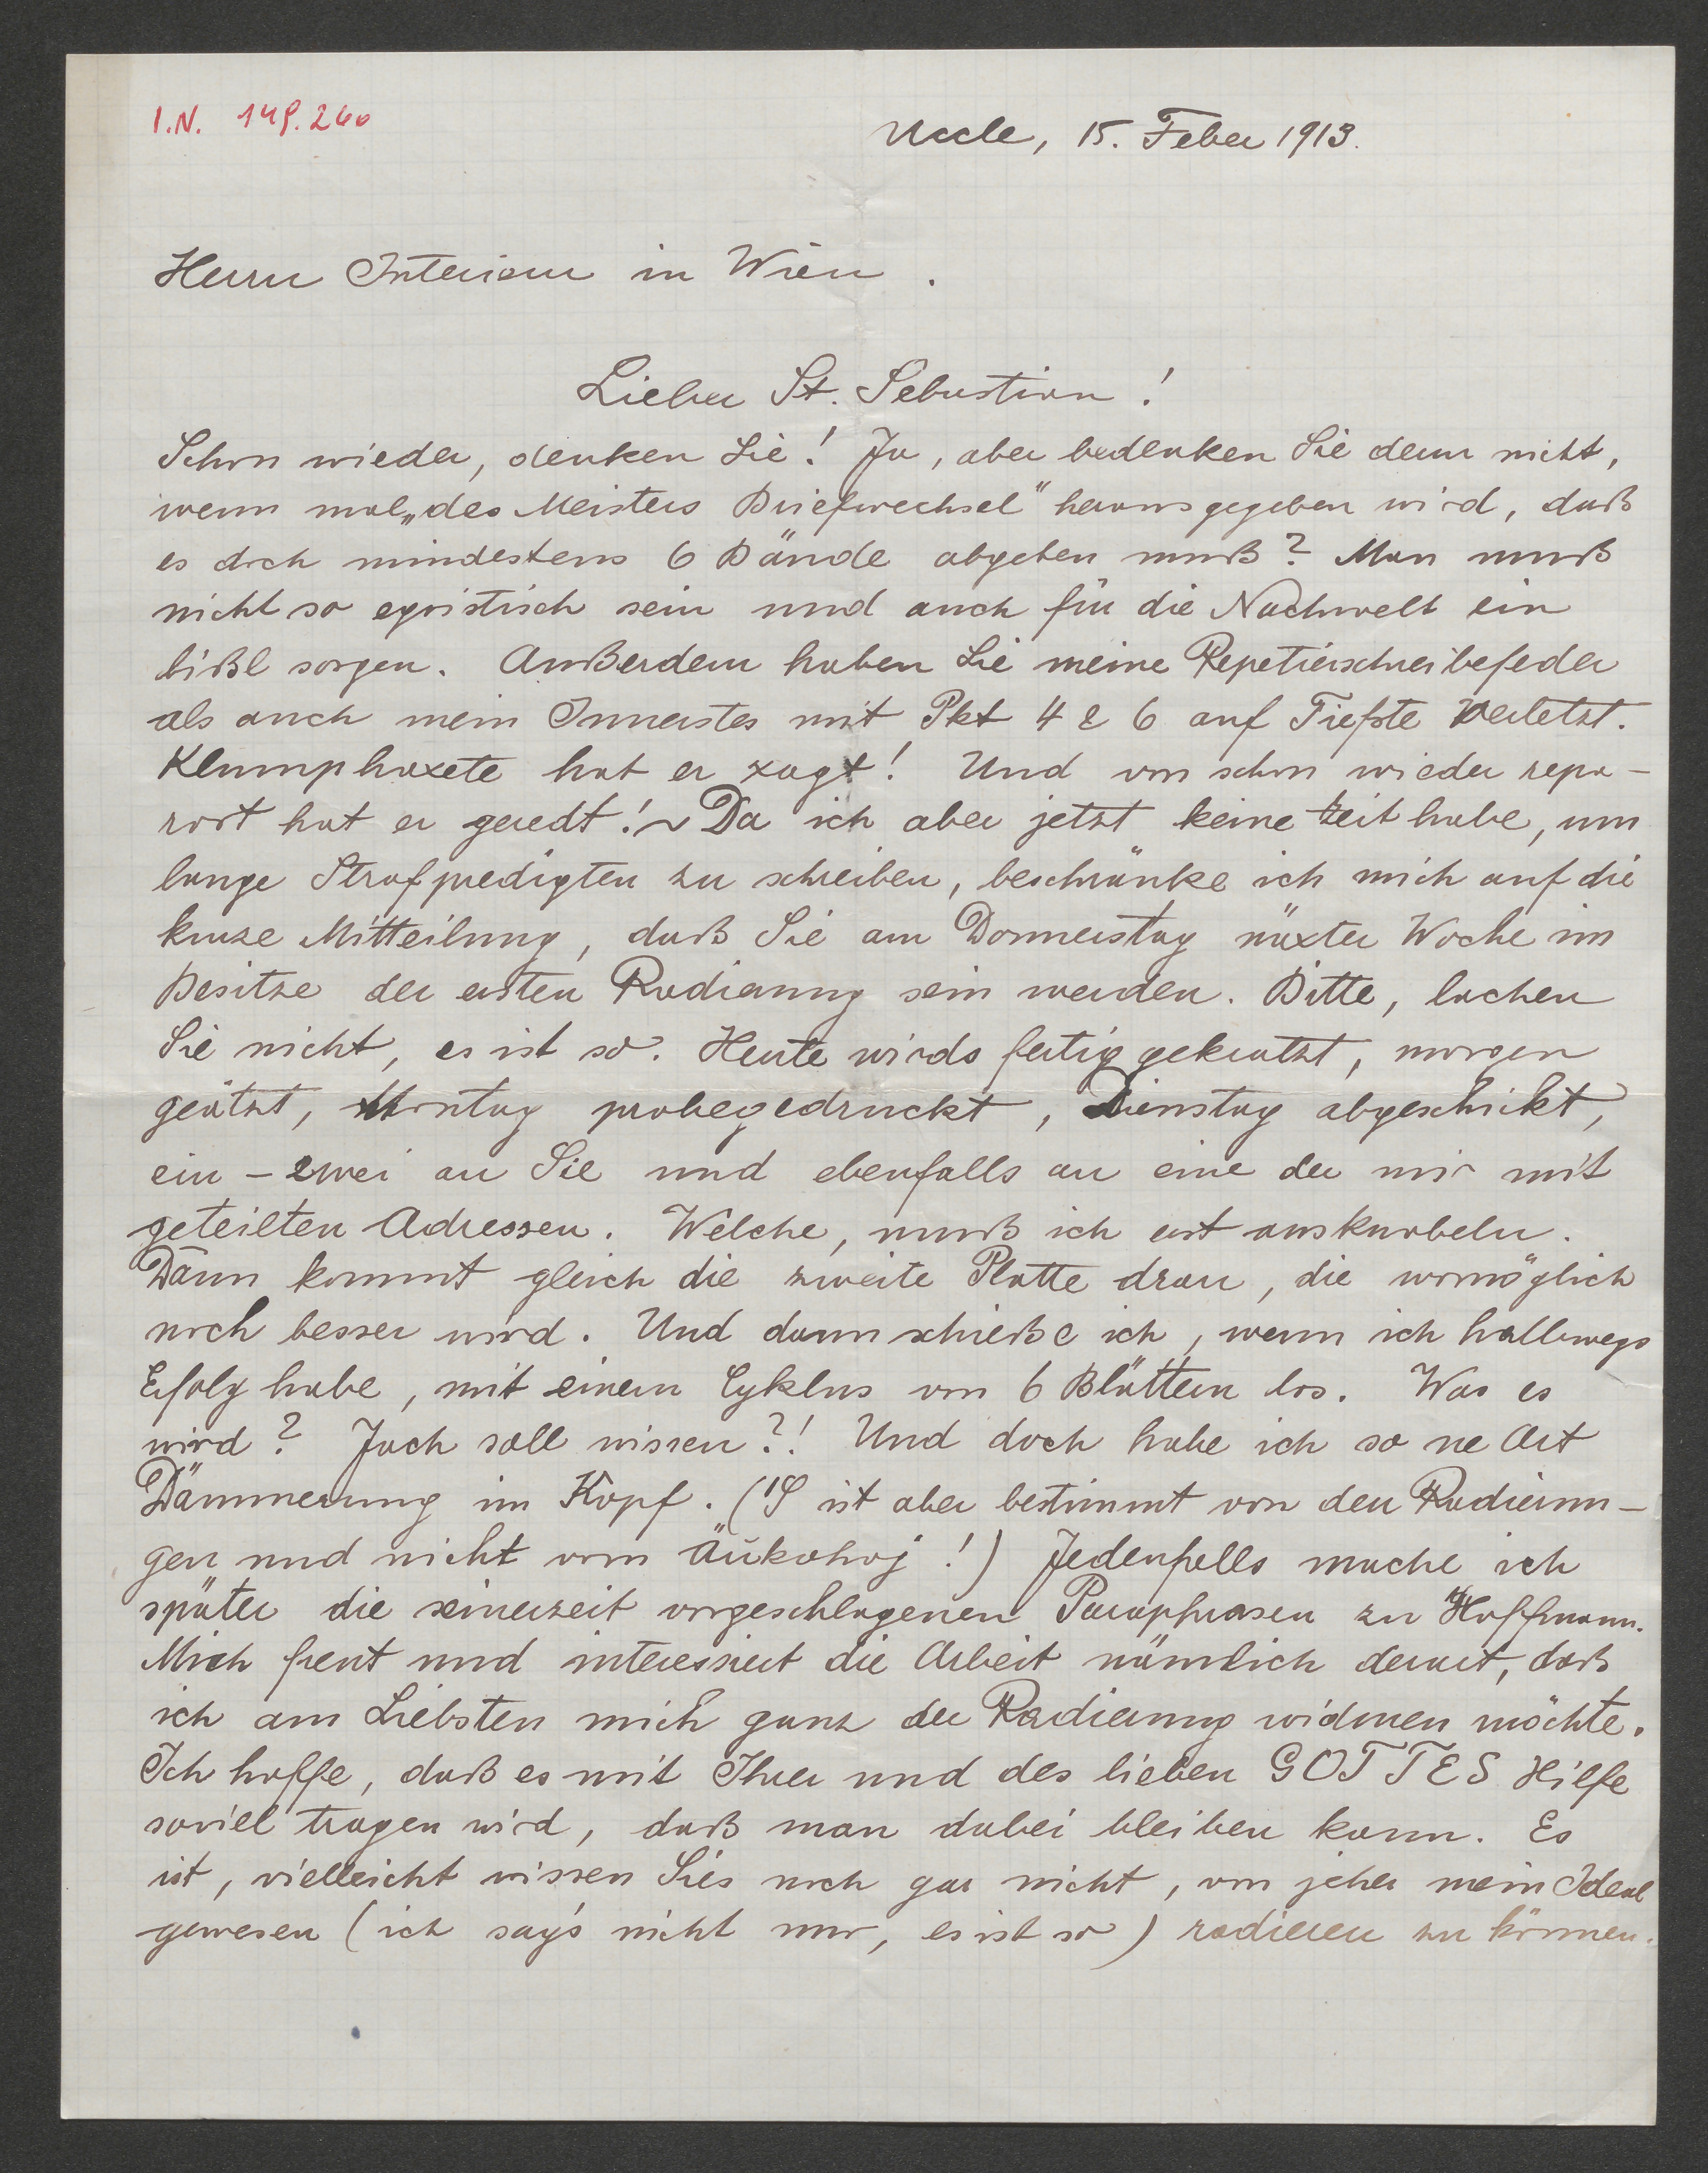 I.N. 149.260
Uccle, 15. Feber 1913.
Herrn Interieur in Wien.
Lieber St. Sebastian!
Schon wieder, denken Sie! Ja, aber bedenken Sie denn nicht,
wenn mal „des Meisters Briefwechsel" herausgegeben wird, daß
es doch mindestens 6 Bände abgeben muß? Man muß
nicht so egoistisch sein und auch für die Nachwelt ein
bißl sorgen. Außerdem haben Sie meine Repetierschreibefeder
als auch mein Innerstes mit Pkt 4 & 6 auf Tiefste verletzt.
Klumphaxete hat er xagt! Und von schon wieder repa-
rort hat er geredt! ~ Da ich aber jetzt keine Zeit habe, um
lange Strafpredigten zu schreiben, beschränke ich mich auf die
kurze Mitteilung, daß Sie am Donnerstag näxter Woche im
Besitze der ersten Radierung sein werden. Bitte, lachen
Sie nicht, es ist so. Heute wirds fertig gekratzt, morgen
geätzt, Montag probegedruckt, Dienstag abgeschikt,
ein - zwei an Sie und ebenfalls an eine der mir mit
geteilten Adressen. Welche, muß ich erst ausknobeln.
Dann kommt gleich die zweite Platte dran, die womöglich
noch besser wird. Und dann schieße ich, wenn ich halbwegs
Erfolg habe, mit einem Cyklus von 6 Blättern los. Was es
wird? Jach soll wissen?! Und doch habe ich so ne Art
Dämmerung im Kopf. ('S ist aber bestimmt von den Radierun-
gen und nicht vom Äukohoj!) Jedenfalls mache ich
später die seinerzeit vorgeschlagenen Paraphrasen zu Hoffmann.
Mich freut und interessiert die Arbeit nämlich derart, daß
ich am Liebsten mich ganz der Radierung widmen möchte.
Ich hoffe, daß es mit Ihrer und des lieben GOTTES Hilfe
soviel tragen wird, daß man dabei bleiben kann. Es
ist, vielleicht wissen Sies noch gar nicht, von jeher mein Ideal
gewesen (ich sag's nicht nur, es ist so) radieren zu können.